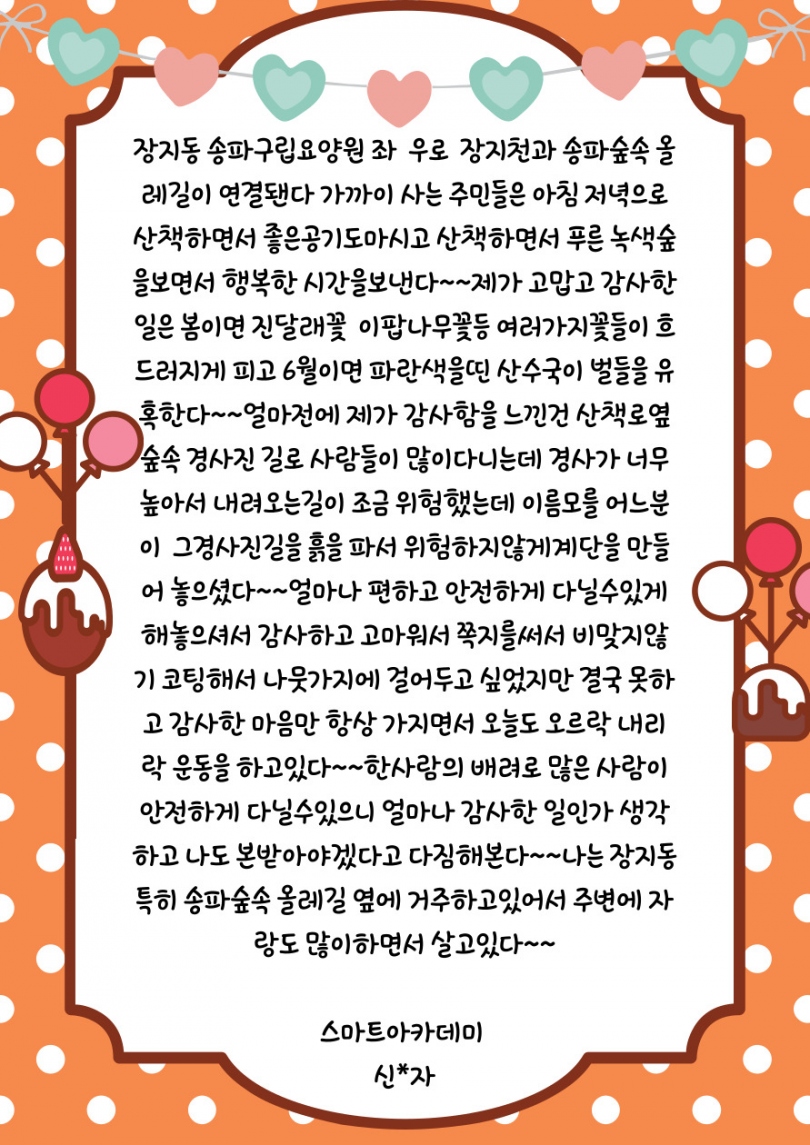 장지동 송파구립요양원 좌  우로  장지천과 송파숲속 올
레길이 연결됀다 가까이 사는 주민들은 아침 저녁으로
산책하면서 좋은공기도마시고 산책하면서 푸른 녹색숲
을보면서 행복한 시간을보낸다~~제가 고맙고 감사한
일은 봄이면 진달래꽃  이팝나무꽃등 여러가지꽃들이 흐
드러지게 피고 6월이면 파란색을띤 산수국이 벌들을 유
혹한다~~얼마전에 제가 감사함을 느낀건 산책로옆
숲속 경사진 길로 사람들이 많이다니는데 경사가 너무
높아서 내려오는길이 조금 위험했는데 이름모를 어느분
이  그경사진길을 흙을 파서 위험하지않게계단을 만들
어 놓으셨다~~얼마나 편하고 안전하게 다닐수있게
해놓으셔서 감사하고 고마워서 쪽지를써서 비맞지않
기 코팅해서 나뭇가지에 걸어두고 싶었지만 결국 못하
고 감사한 마음만 항상 가지면서 오늘도 오르락 내리
락 운동을 하고있다~~한사람의 배려로 많은 사람이
안전하게 다닐수있으니 얼마나 감사한 일인가 생각
하고 나도 본받아야겠다고 다짐해본다~~나는 장지동
특히 송파숲속 올레길 옆에 거주하고있어서 주변에 자
랑도 많이하면서 살고있다~~
스마트아카데미
신*자